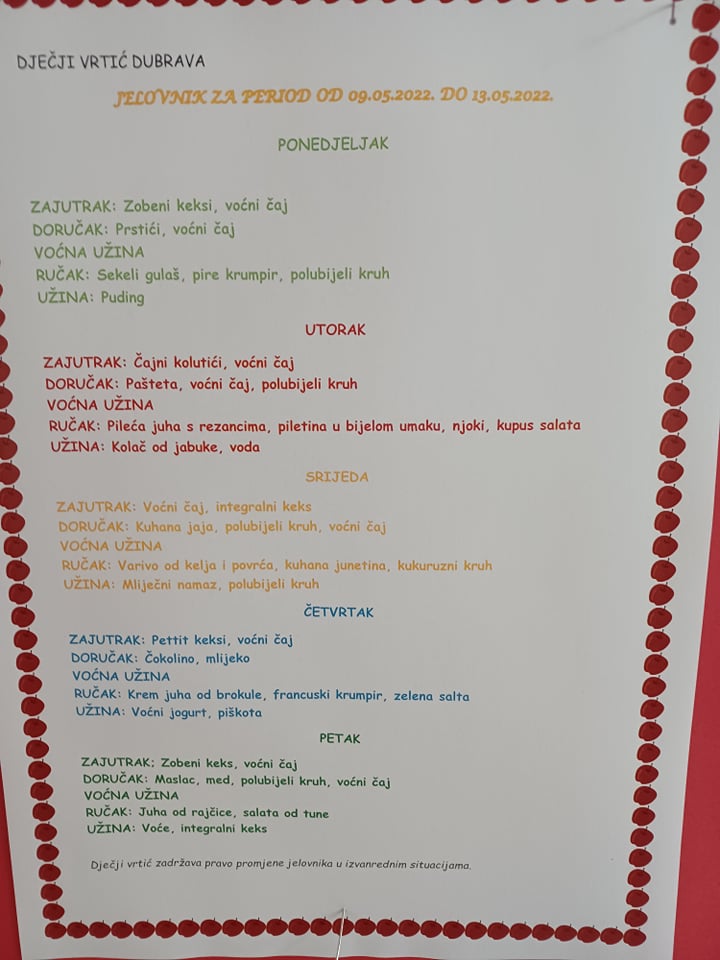 DJEČJI VRTIĆ DUBRAVA
JELOVNIK ZA PERIOD OD 09.05.2022. DO 13.05.2022.
PONEDJELJAK
ZAJUTRAK: Zobeni keksi, voćni čaj
DORUČAK: Prstići, voćni čaj
VOĆNA UŽINA
RUČAK: Sekeli gulaš, pire krumpir, polubijeli kruh
UŽINA: Puding
UTORAK
ZAJUTRAK: Čajni kolutići, voćni čaj
DORUČAK: Pašteta, voćni čaj, polubijeli kruh
VOĆNA UŽINA
RUČAK: Pileća juha s rezancima, piletina u bijelom umaku, njoki, kupus salata
UŽINA: Kolač od jabuke, voda
SRIJEDA
ZAJUTRAK: Voćni čaj, integralni keks
DORUČAK: Kuhana jaja, polubijeli kruh, voćni čaj
VOĆNA UŽINA
RUČAK: Varivo od kelja i povrća, kuhana junetina, kukuruzni kruh
UŽINA: Mliječni namaz, polubijeli kruh
ČETVRTAK
ZAJUTRAK: Pettit keksi, voćni čaj
DORUČAK: Čokolino, mlijeko
VOĆNA UŽINA
RUČAK: Krem juha od brokule, francuski krumpir, zelena salta
UŽINA: Voćni jogurt, piškota
PETAK
ZAJUTRAK; Zobeni keks, voćni čaj
DORUČAK: Maslac, med, polubijeli kruh, voćni čaj
VOĆNA UŽINA
RUČAK: Juha od rajčice, salata od tune
UŽINA: Voće, integralni keks
Dječji vrtić zadržava pravo promjene jelovnika u izvanrednim situacijama.